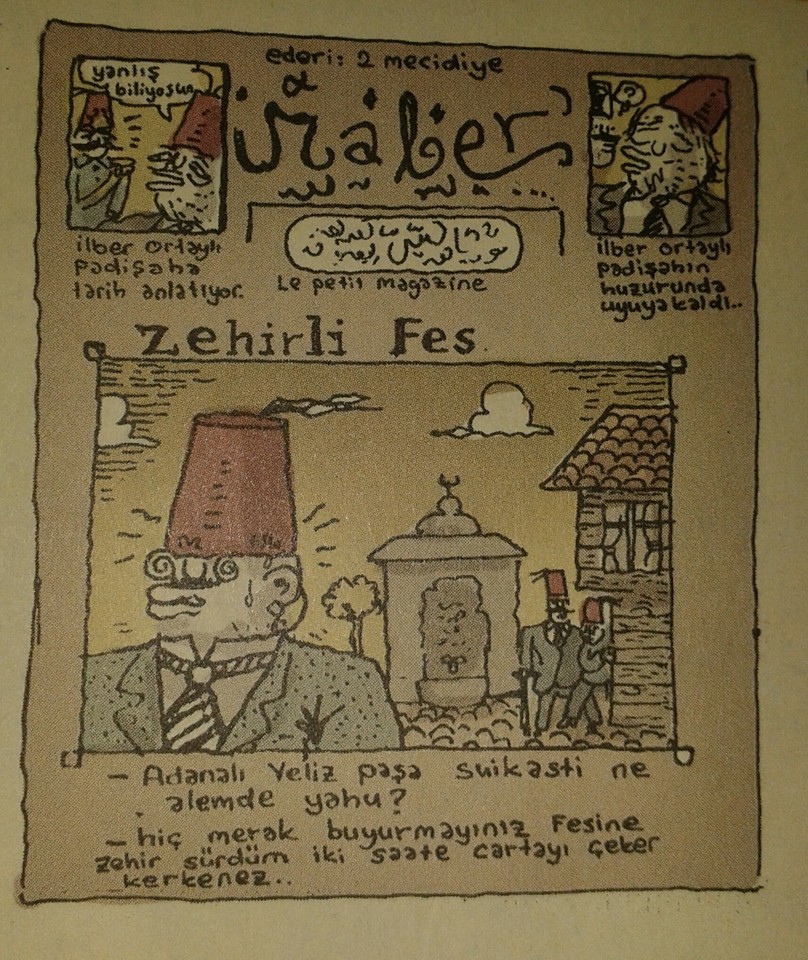 ederi: 2 mecidiye
yanlış
biliyosun
ilber ortaylı
padişaha
tarih anlatıyor.
Le petit magazine
ilber ortaylı
padişahın
huzurunda
uyuyakaldı..
zehirli Fes
– Adanalı Yeliz paşa suikasti ne
alemde yahu?
– hiç merak buyurmayınız Fesine
zehir sürdüm iki saate cartayı çeker
kerkenez..